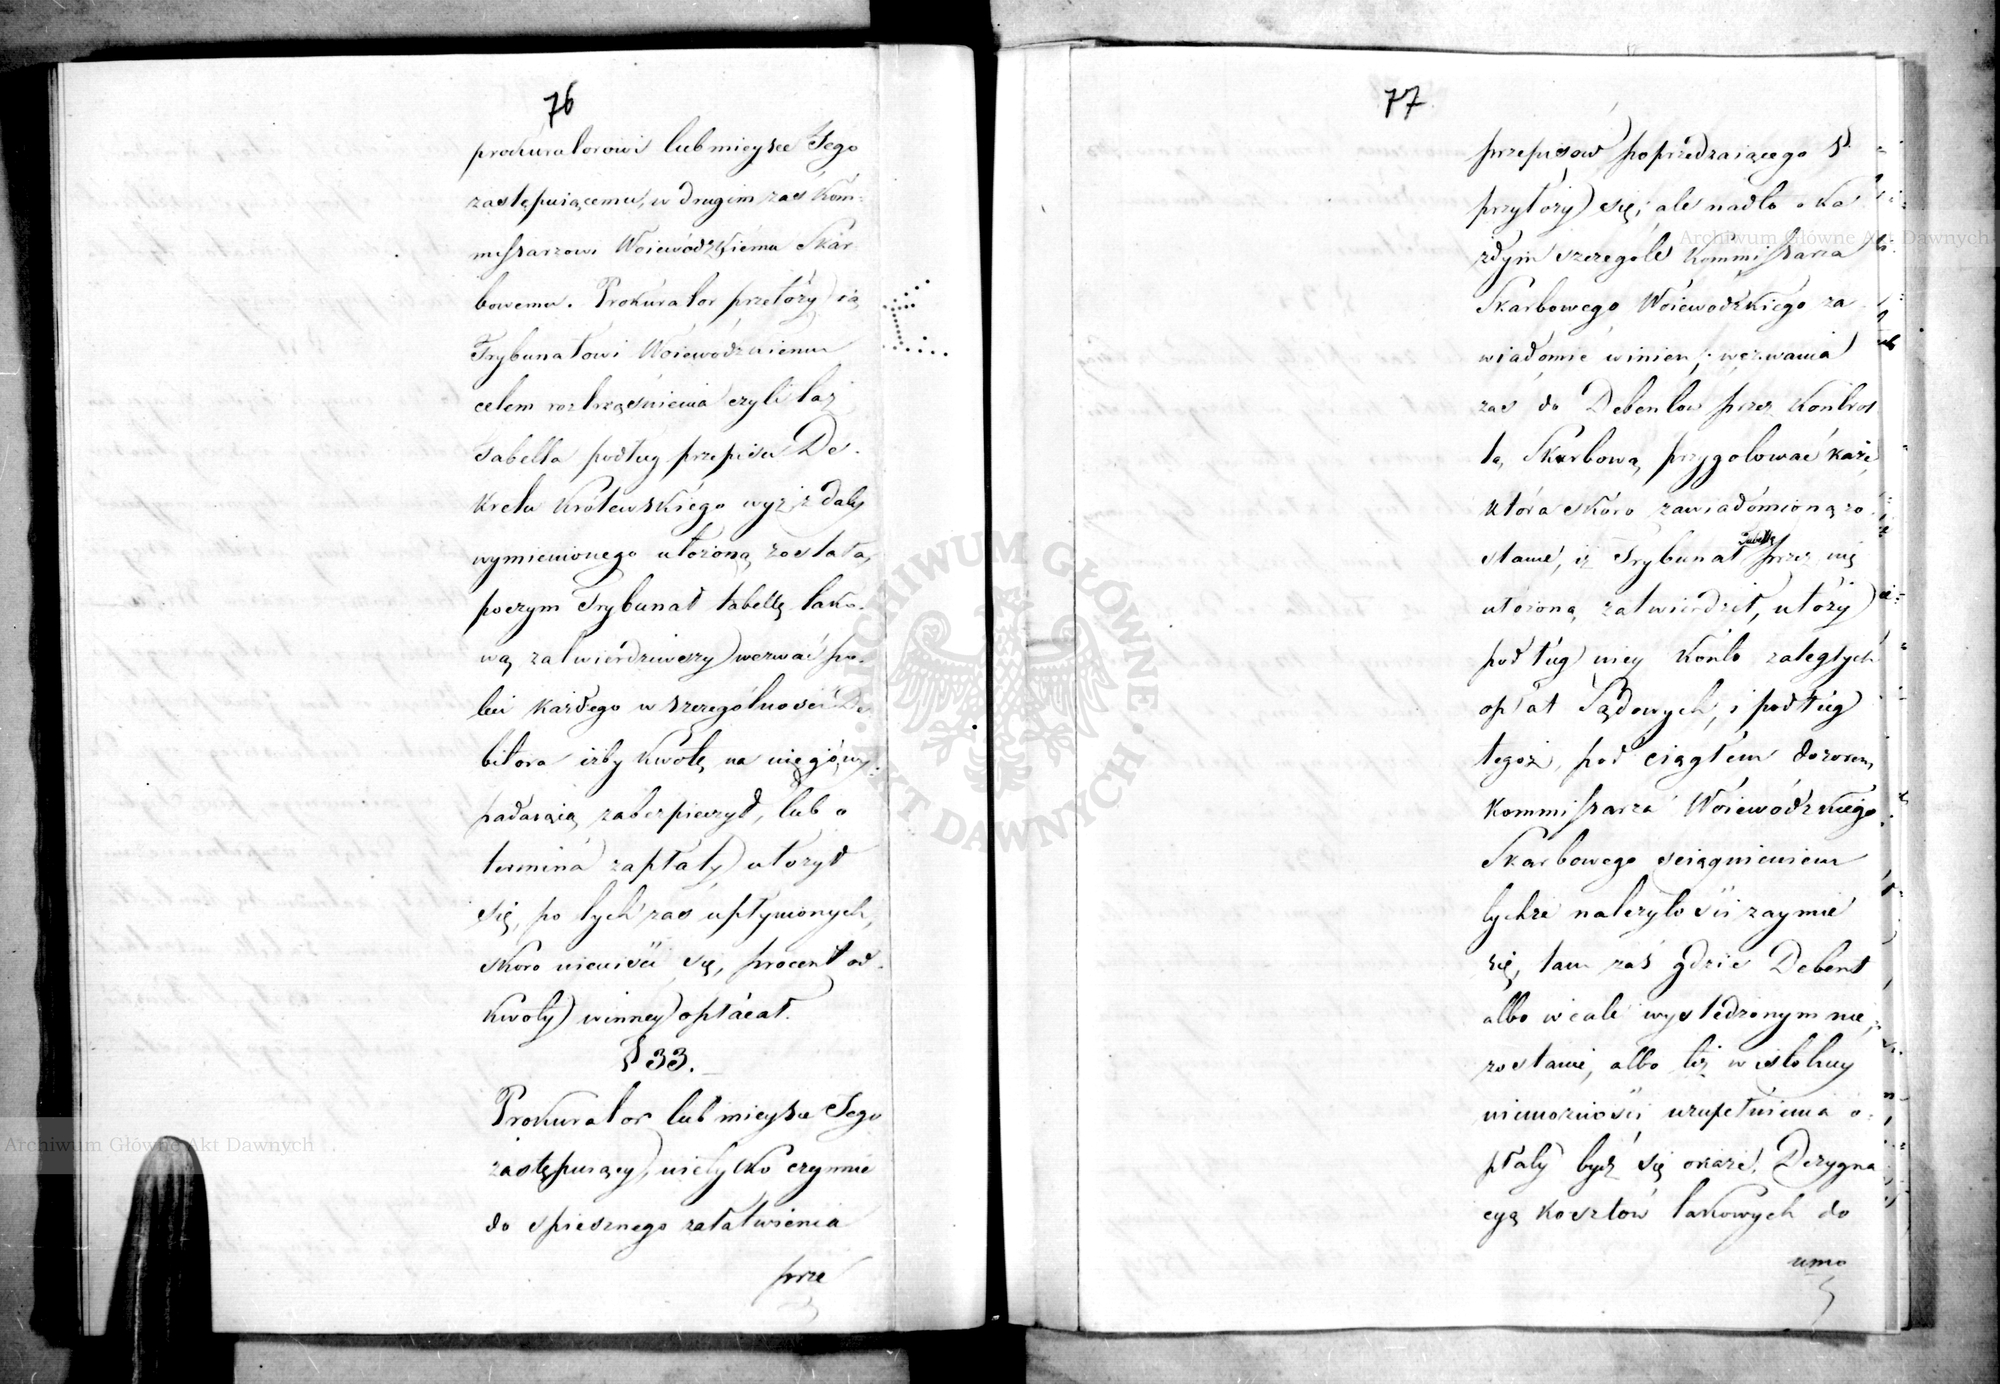 76
prokuratorowi lub mieysce Jego
zastępuiącemu, w drugim zaś Kom-
missarzowi Woiewódzkiému Skar-
bowemu. Prokurator przełoży ią
Trybunałowi Woiewódzkiemu
celem roztrząśnienia czyli taż
Tabella podług przepisu De-
kretu Królewskiégo wyż z daty
wymienionego ułożoną została,
poczym Trybunał tabellę tako-
wą zatwierdziwszy wezwać po-
leci każdego w szczególności De-
bitora iżby kwotę na niego wy-
padaiącą zabezpieczył, lub o
termina zapłaty ułożył
się, po tych zaś upłynionych,
skoro nieuiści się, procent od
kwoty winney opłácał.
§ 33.
Prokurator lub mieysce Jego
zastępuiący, nietylko czynnie
do spiesznego załatwienia
prze
77
przepisów poprzedzaiącego §
przyłoży się; ale nadto o ka-
żdym szczególe Kommissarza
Skarbowego Woiewódzkiégo za-
wiadomić winien; wezwania
zaś do Debentów przez Kontrol-
lę Skarbową przygotować każe
która skóro zawiadómioną zo-
stanie, iż Trybunał Tabellę przez nię
ułożoną zatwierdził, ułoży
podług niey Konto zaległych
opłat Sądowych, i podług
tegoż, pod ciągłém dozorem
Kommissarza Woiewódzkiégo
Skarbowego sciągnieniem
tychże należytości zaymie
się, tam zaś gdzie Debent
albo wcale wyśledzonym nie
zostanie, albo też w istotney
niemożności uzupełnienia o-
płaty bydź się okaże, Dezygna
cyą kosztów takowych do
umo
Archiwum Główne Akt Dawnych
Archiwum Główne Akt Dawnych
ARCHIWUM GŁÓWNE · AKT DAWNYCH ·